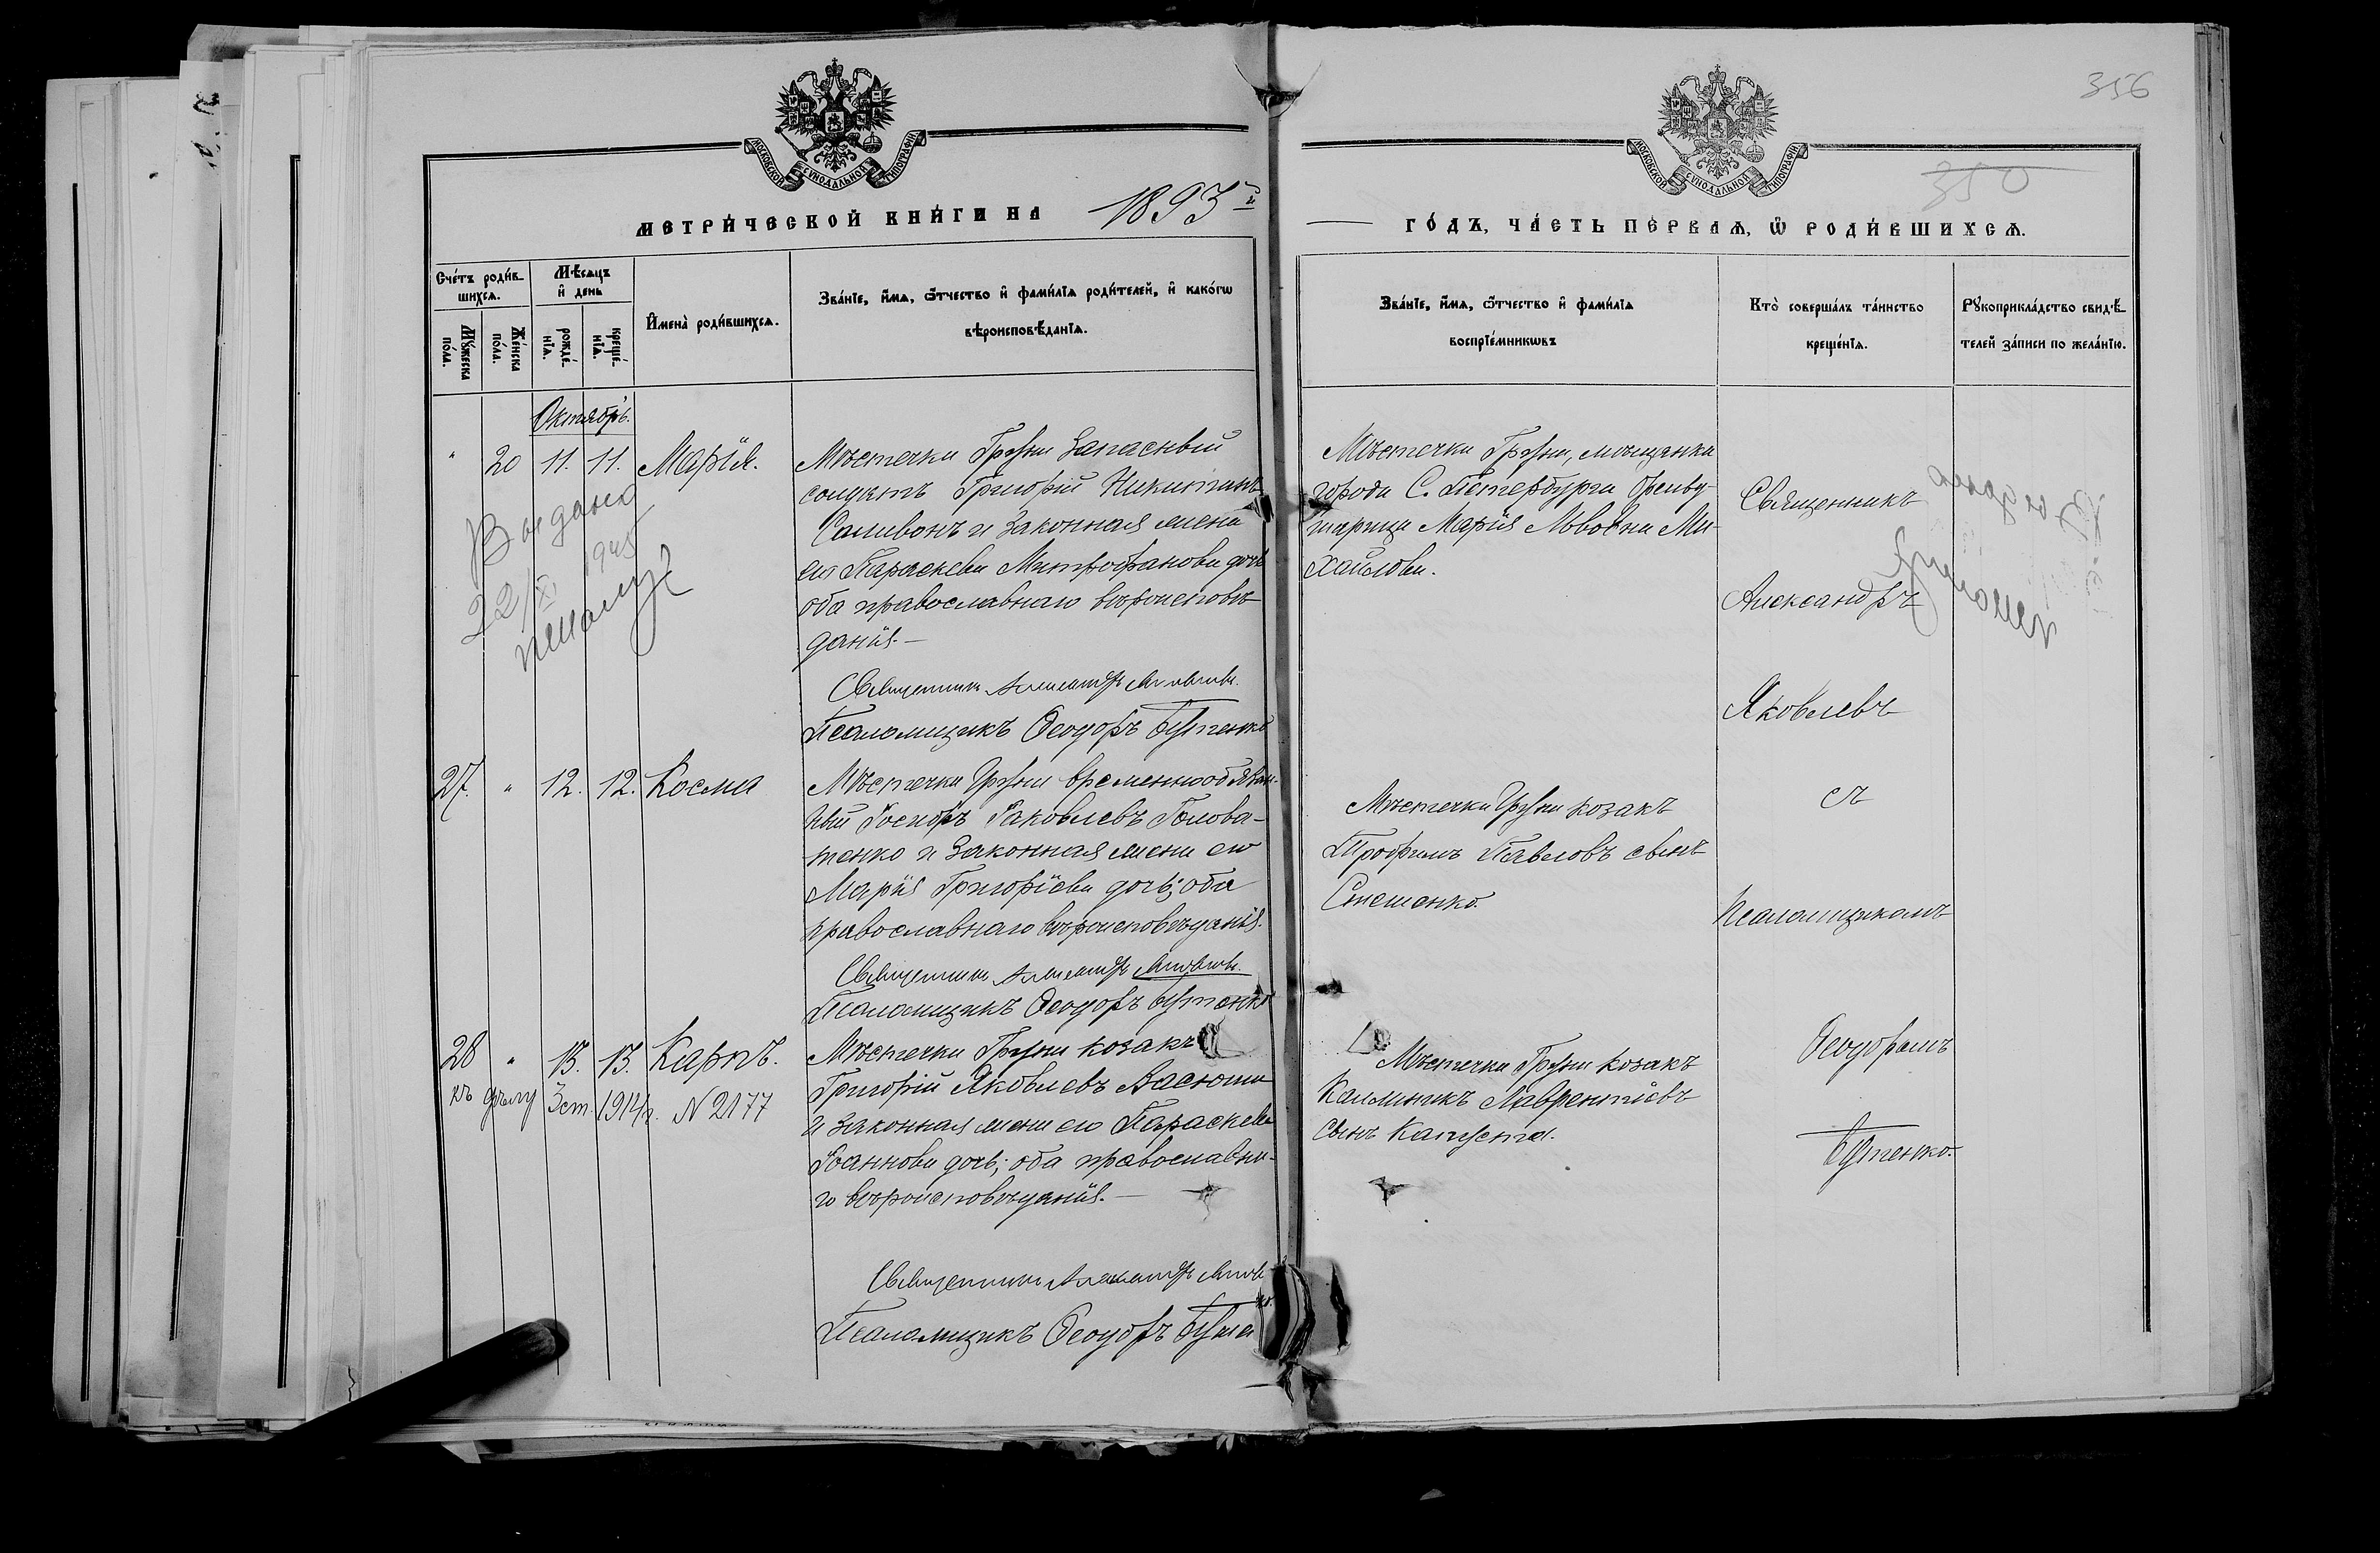 356
350
МОСКОВСКОЙ СѴНОДАЛЬНОЙ ТИПОГРАФІИ
МОСКОВСКОЙ СѴНОДАЛЬНОЙ ТИПОГРАФІИ
МЕТРИ́ЧЕСКОЙ КНИ́ГИ НА 1893й
ГО́ДЪ, ЧА́СТЬ ПЕ́РВАѦ, Ѿ РОДИ́ВШИХСѦ.
Сче́тъ роди́в-
шихсѧ.
Мꙋ́жеска по́ла.
Же́нска по́ла.
Мѣ́сѧцъ и҆ день
рожде́-
нїѧ.
креще́-
нїѧ.
И҆мена̀ роди́вшихсѧ.
Зва́нїе, и҆́мѧ, ѻ҆́тчество и҆ фами́лїѧ роди́телей, и҆ како́гѡ
вѣроисповѣ́данїѧ.
Зва́нїе, и҆́мѧ, ѻ҆́тчество и҆ фами́лїѧ
воспрїе́мникѡвъ
Кто̀ соверша́лъ та́инство
креще́нїѧ.
Рꙋкоприкла́дство свидѣ́-
телей за́писи по жела́нїю.
Октябрь.
" 20 11. 11. Марія.
Мѣстечка Груни запасный
солдатъ Григорій Никитинъ
Саливонъ и законная жена
его Параскева Митрофанова дочь
оба православнаго вѣроисповѣ-
данія.—
Священникъ Александръ Яковлевъ.
Псаломщикъ Ѳеодоръ Бутенко
Выдано
22/XI 1945
Мѣстечка Груни, мѣщанка
города С. Петербурга
Марія Львовна Ми-
хайлова.
Священникъ
Александръ
Яковлевъ
съ
псаломщикомъ
Ѳеодоромъ
Бутенко.
27. " 12. 12. Косма
Мѣстечка Груни временнообязан-
ный Іосифъ Іаковлевъ Голова-
тенко и законная жена его
Марія Григоріева дочь; оба
православнаго вѣроисповѣданія.
Священникъ Александръ Яковлевъ.
Псаломщикъ Ѳеодоръ Бутенко
Мѣстечка Груни козакъ
Трофимъ Павловъ сынъ
Стешенко.
28 " 13. 13. Карпъ.
къ дѣлу 3 ст. 1914 г. N 2177
Мѣстечка Груни козакъ
Григорій Яковлевъ
и законная жена его Параскева
Іоаннова дочь; оба православна-
го вѣроисповѣданія.—
Священникъ Александръ Яковл
Псаломщикъ Ѳеодоръ Бутенко.
Мѣстечка Груни козакъ
Калиникъ Лаврентіевъ
сынъ Капуста.